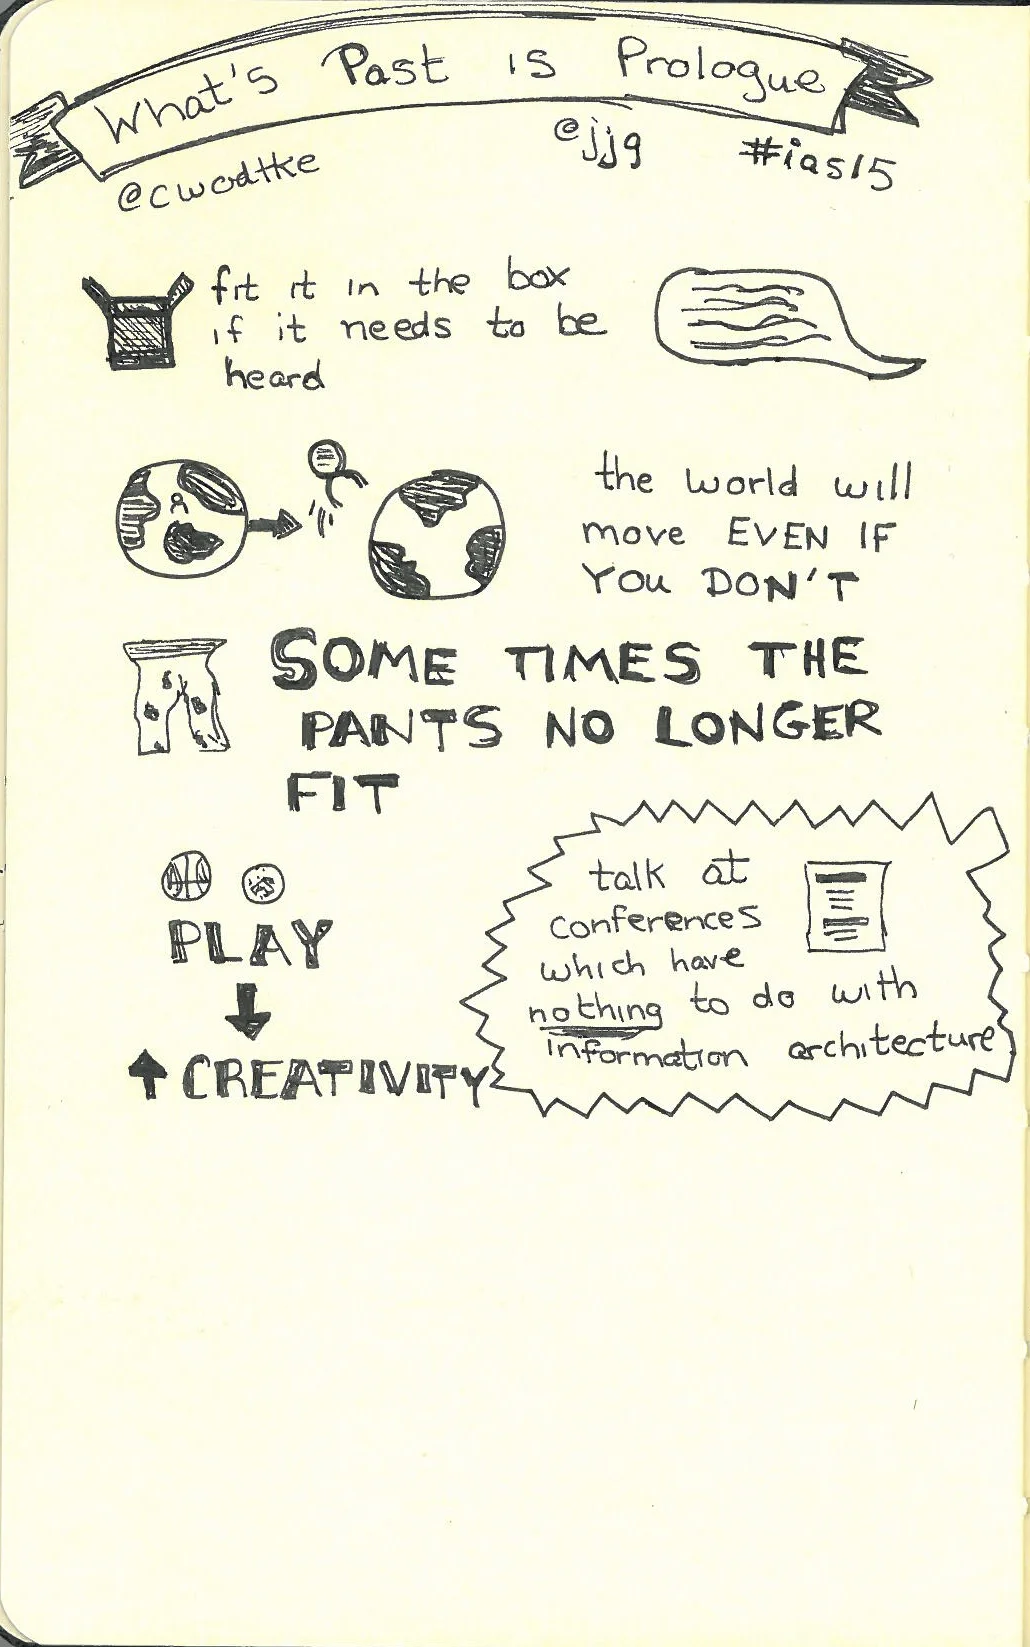 What's Past is Prologue
@cwodtke @jjg #ias15
fit it in the box
if it needs to be
heard
the world will
move EVEN IF
YOU DON'T
SOME TIMES THE
PANTS NO LONGER
FIT
talk at
conferences
which have
nothing to do with
information architecture
PLAY
CREATIVITY